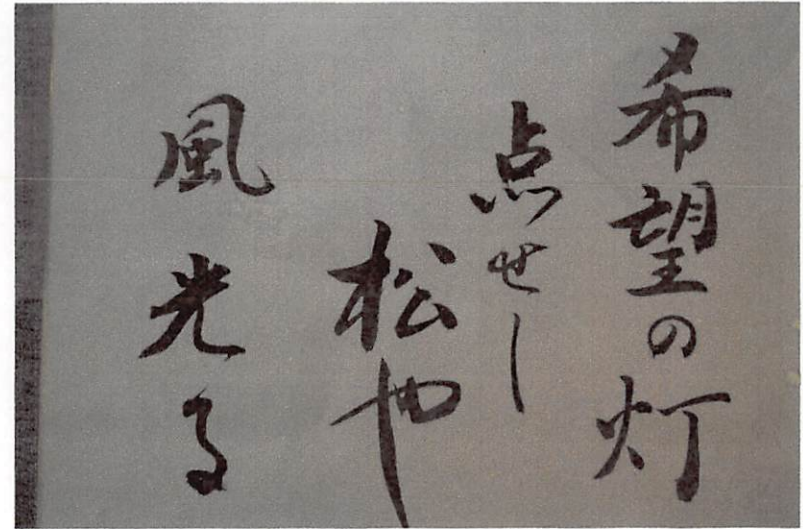 希望の灯
点せし
松や
風光る